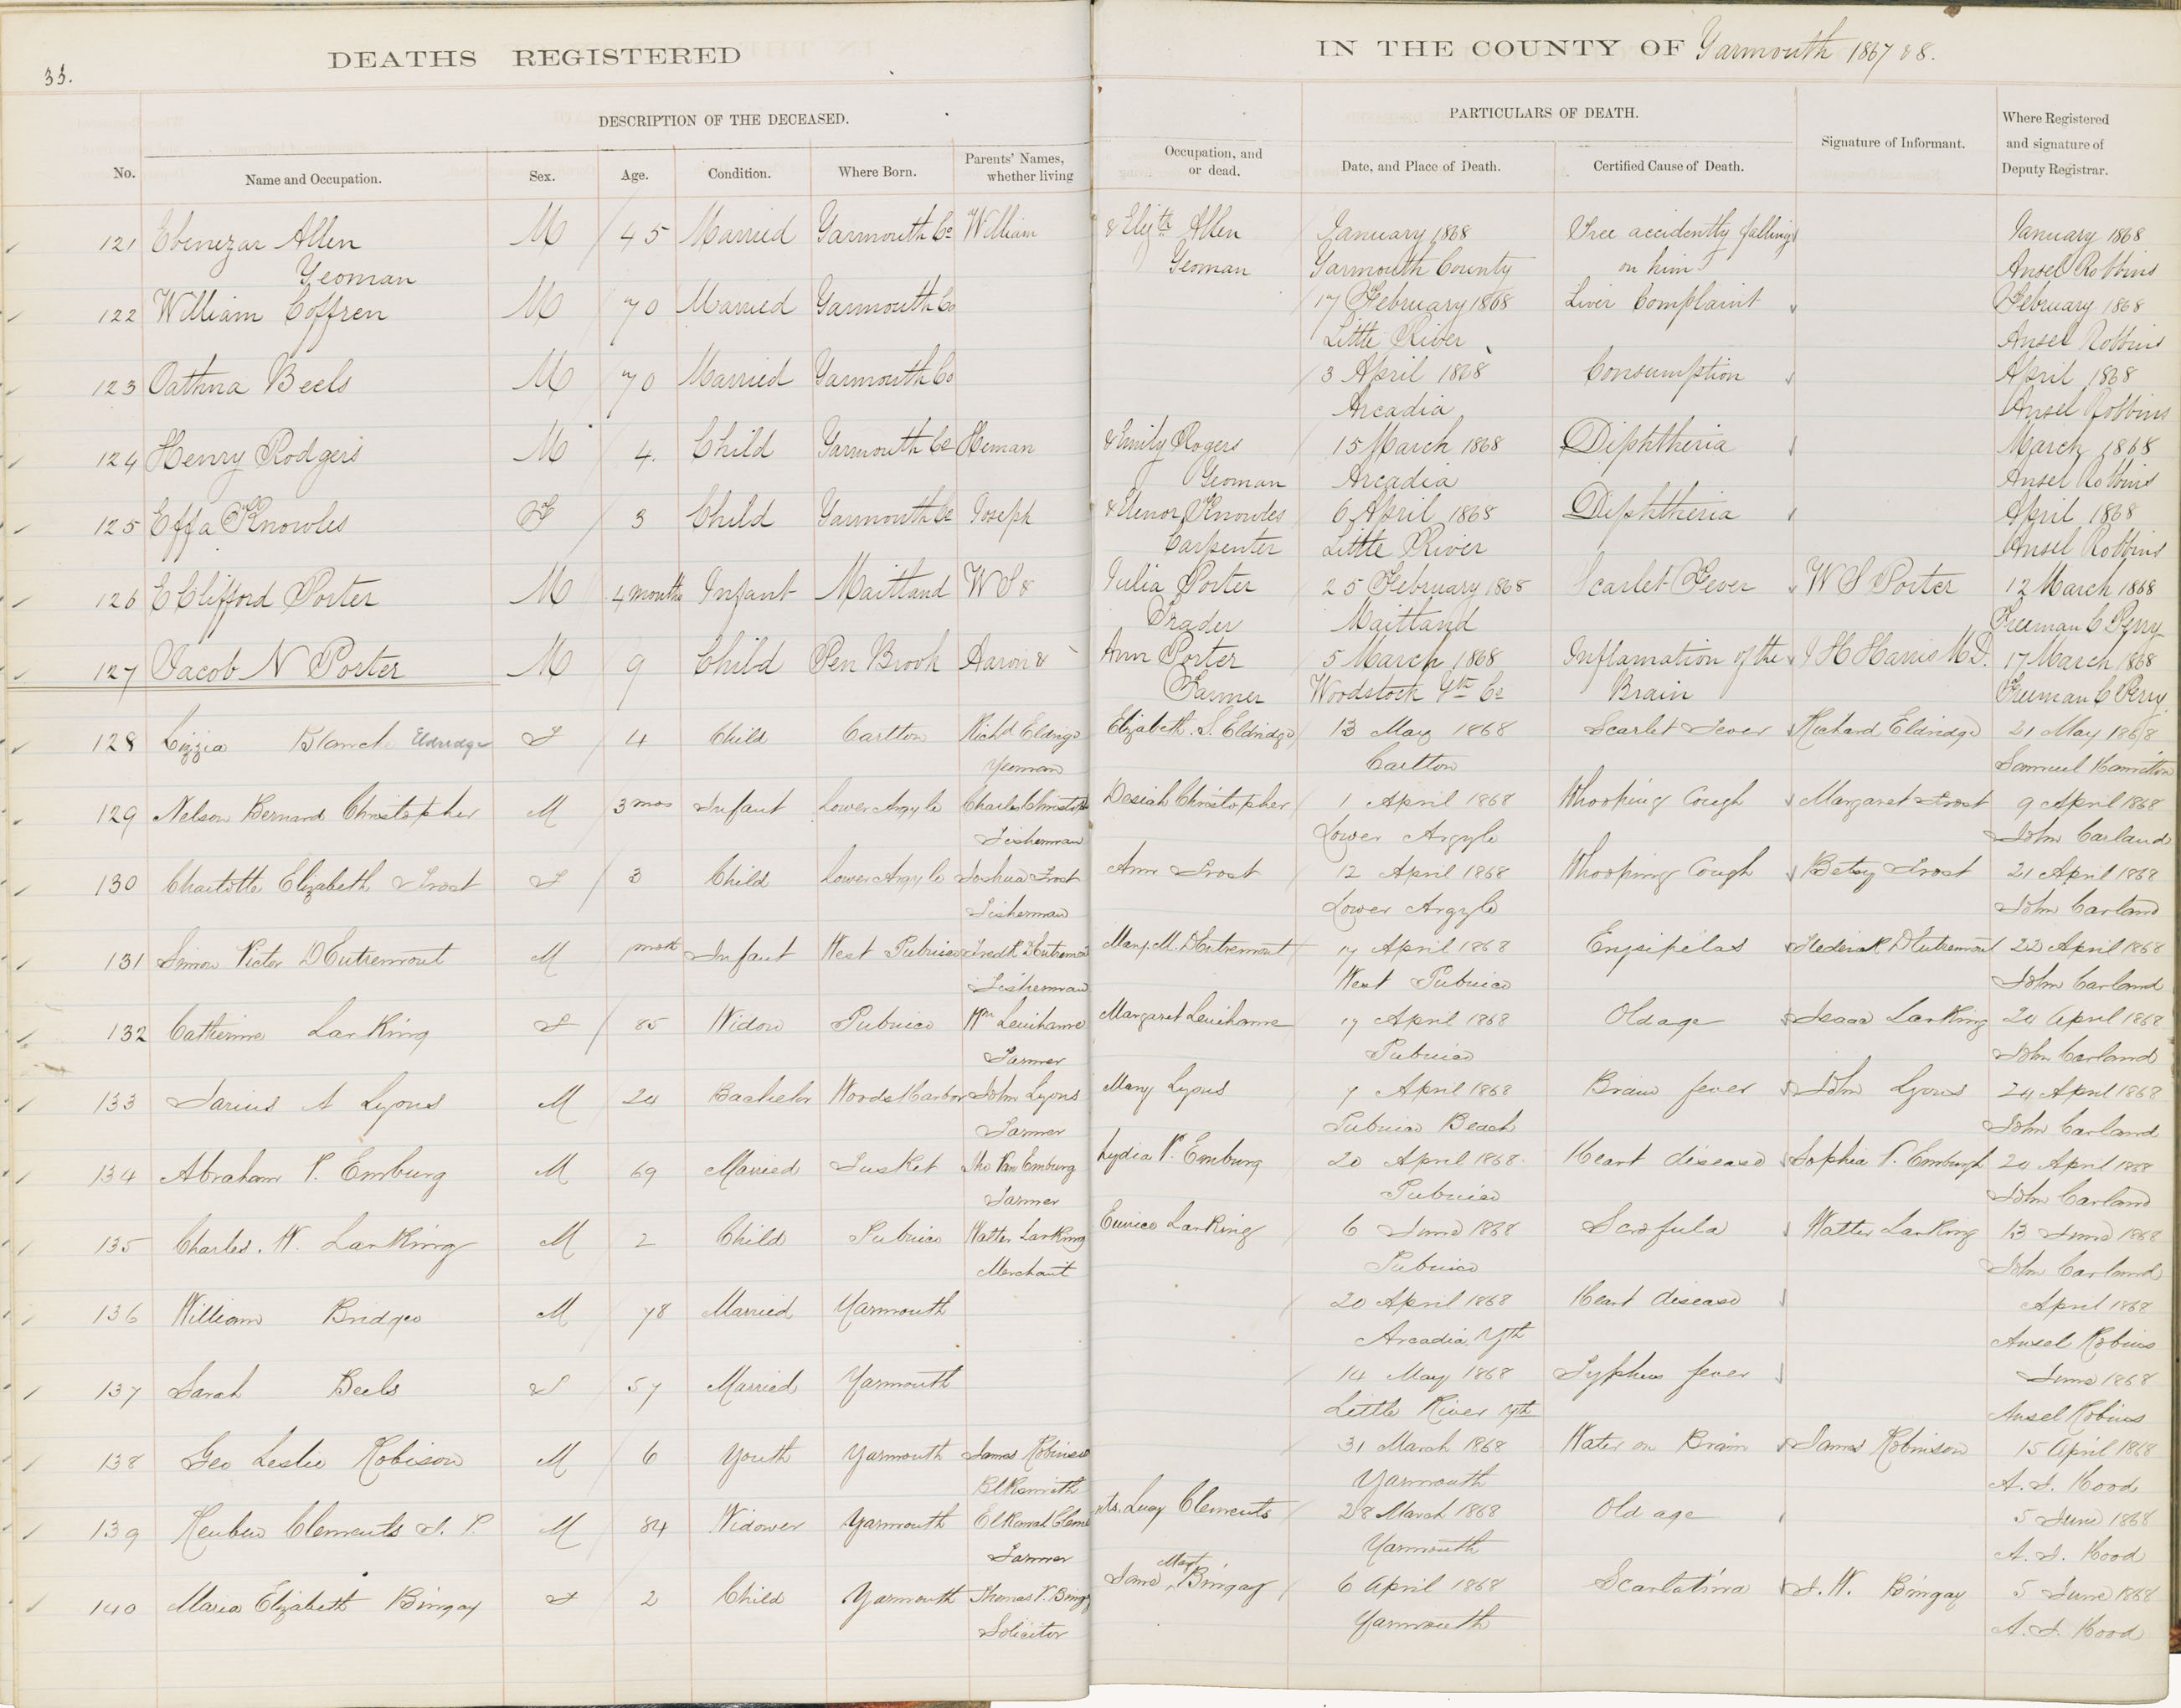 DEATHS REGISTERED
IN THE COUNTY OF Yarmouth 1867 & 8.
33.
DESCRIPTION OF THE DECEASED.
PARTICULARS OF DEATH.
No. Name and Occupation. Sex. Age. Condition. Where Born. Parents' Names, whether living Occupation, and or dead. Date, and Place of Death. Certified Cause of Death. Signature of Informant. Where Registered and signature of Deputy Registrar.
121 Ebenezar Allen M 45 Married Yarmouth Co William & Elizth Allen January 1868 Tree accidently falling January 1868
Yeoman Yeoman Yarmouth County on him Ansel Robbins
122 William Coffren M 70 Married Yarmouth Co 17 February 1868 Liver Complaint February 1868
Little River Ansel Robbins
123 Beels M 70 Married Yarmouth Co 3 April 1868 Consumption April 1868
Arcadia Ansel Robbins
124 Henry Rodgers M 4 Child Yarmouth Co Heman & Emily Rogers 15 March 1868 Diphtheria March 1868
Yeoman Arcadia Ansel Robbins
125 Effa Knowles F 3 Child Yarmouth Co Joseph & Elenor Knowles 6 April 1868 Diphtheria April 1868
Carpenter Little River Ansel Robbins
126 E Clifford Porter M 4 months Infant Maitland W S & Julia Porter 25 February 1868 Scarlet Fever W S Porter 12 March 1868
Trader Maitland Freeman C Perry
127 Jacob N Porter M 9 Child Pen Brook Aaron & Ann Porter 5 March 1868 Inflamation of the J H Harris M.D. 17 March 1868
Farmer Woodstock Yth Co Brain Freeman C Perry
128 Lizzia Blanch Eldredge F 4 Child Carlton Richd Eldrige Elizabeth. S. Eldridge 13 May 1868 Scarlet Fever Richard Eldridge 21 May 1868
Yeoman Carlton Samuel Hamilton
129 Nelson Bernard Christopher M 3 mos Infant Lower Argyle Charles Christoph Desiah Christopher 1 April 1868 Whooping Cough Margaret Frost 9 April 1868
Fisherman Lower Argyle John Carland
130 Charlotte Elizabeth Frost F 3 Child Lower Argyle Joshua Frost Ann Frost 12 April 1868 Whooping Cough Betsy Frost 21 April 1868
Fisherman Lower Argyle John Carland
131 Simon Victor DEutremont M month Infant West Pubnico Fredk DEutremont Mary. M. DEutremont 17 April 1868 Erysipelas Frederick DEutremont 22 April 1868
Fisherman West Pubnico John Carland
132 Catherine Larking F 85 Widow Pubnico Wm Margaret 17 April 1868 Old age Isaac Larking 24 April 1868
Farmer Pubnico John Carland
133 Darius A Lyons M 24 Bachelor Woods Harbor John Lyons Mary Lyons 7 April 1868 Brain fever John Lyons 24 April 1868
Farmer Pubnico Beach John Carland
134 Abraham V. Emburg M 69 Married Tusket Jno Van Emburg Lydia V. Emburg 20 April 1868. Heart disease Sophia V. Emburgh 24 April 1868
Farmer Pubnico John Carland
135 Charles. W. Larking M 2 Child Pubnico Walter Larking Eunice Larking 6 June 1868 Scrofula Walter Larking 13 June 1868
Merchant Pubnico John Carland
136 William Bridgeo M 78 Married Yarmouth 20 April 1868 Heart disease April 1868
Arcadia, Yth Ansel Robins
137 Sarah Beels F 57 Married Yarmouth 14 May 1868 Typhus fever June 1868
Little River Yth Ansel Robins
138 Geo Leslie Robison M 6 Youth Yarmouth James Robinson 31 March 1868 Water on Brain James Robinson 15 April 1868
Blksmith Yarmouth A. J. Hood
139 Reuben Clements J. P. M 84 Widower Yarmouth Elkanah Cleme nts. Lucy Clements 28 March 1868 Old age 5 June 1868
Farmer Yarmouth A. J. Hood
140 Maria Elizabeth Bingay F 2 Child Yarmouth Thomas V. Bingay Jane Margt Bingay 6 April 1868 Scarlatina J. W. Bingay 5 June 1868
Solicitor Yarmouth A. J. Hood